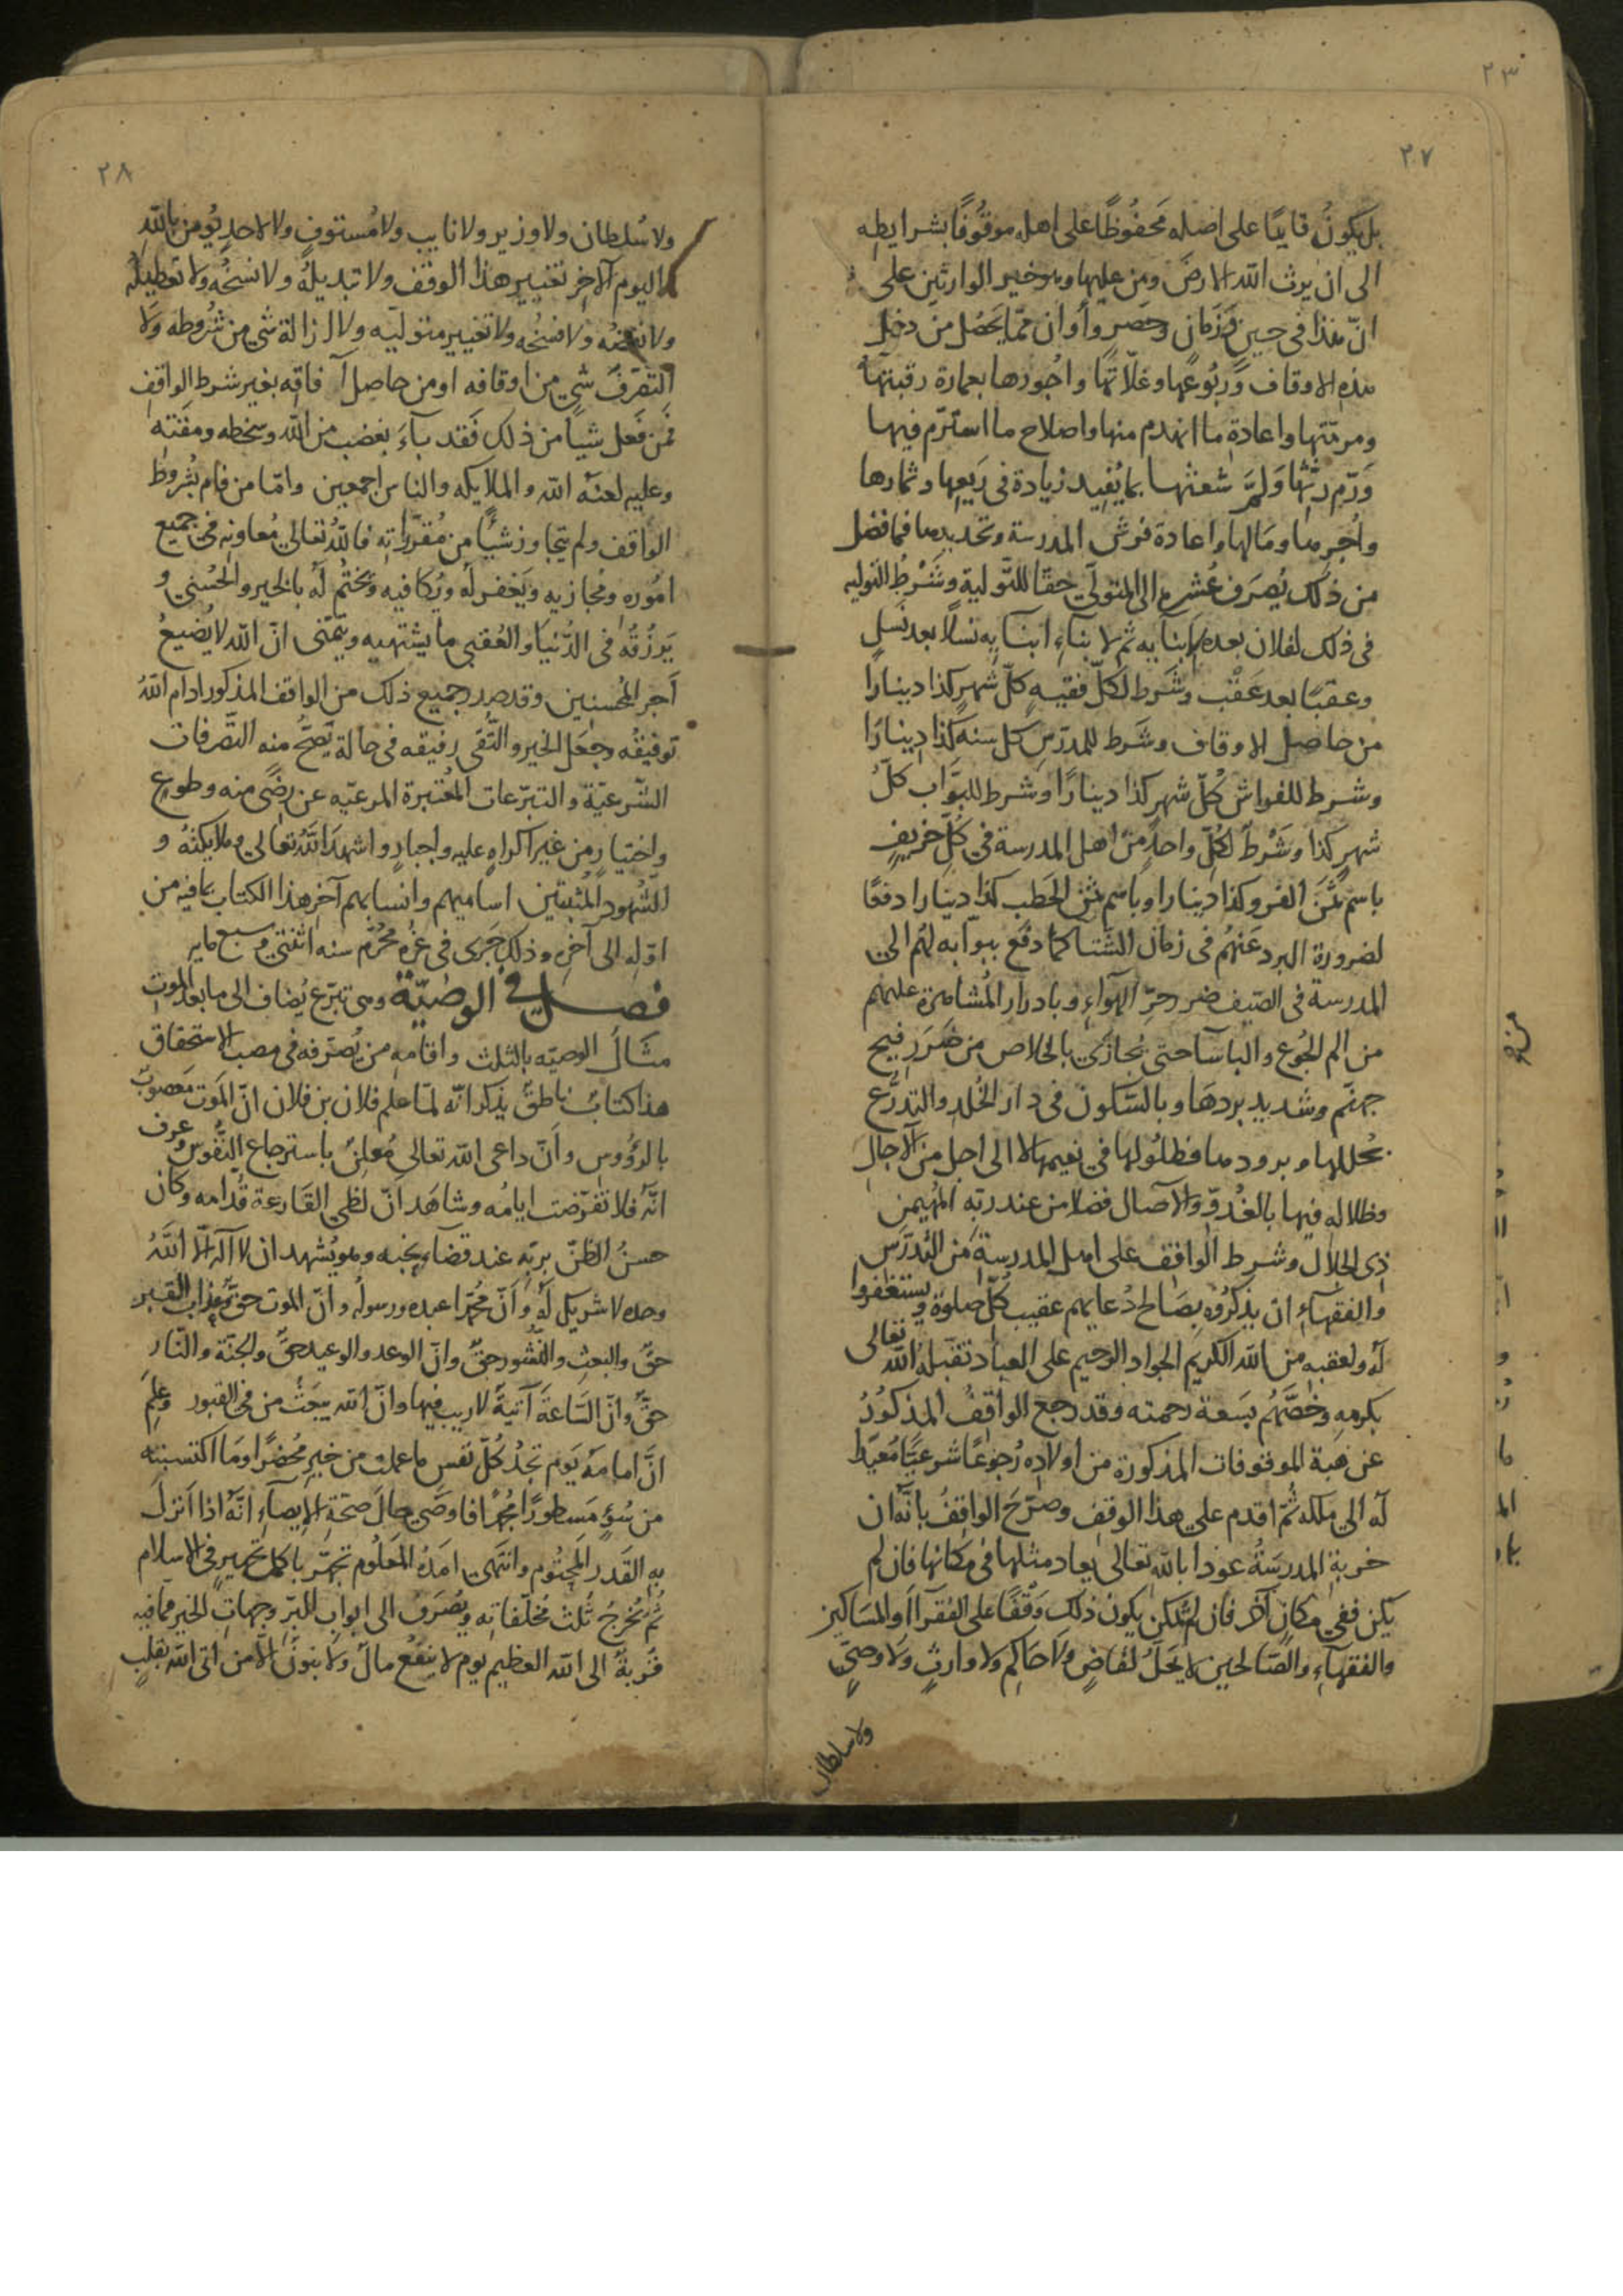 ٢٣
٢٧
بل يكون قايمًا على اصله محفُوظًا على اهله موقُوفًا بشرايطه
الى ان يرث الله الارضَ ومَن عليها وهو خير الوارثين على
انّ هذا فى حينٍ وزمانٍ وعصرٍ وأوان ممّا يحصُل من دخل
هذه الاوقاف ورُبُوعها وغلّاتها واُجُورها بعمارة رقبتها
ومرمّتها واعادةِ ما انهدم منها واصلاح ما استرمّ فيها
وَرَمِّ رثّها وَلمِّ شعثها بما يُفيد زيادة فى رَيعها وثمارها
واُجرها ومَالها واعادة فرش المدرسة وتجديدها فما فضل
من ذلك يُصرَف عُشره الى المتولّى حقّا للتّولية وشَرْطُ التوليه
فى ذلك لفلان بعده لابنايه ثم لابناءِ ابنايه نسلًا بعد نَسلٍ
وعقبًا بعد عَقْب وشَرط لكلّ فقيهٍ كلّ شهرٍ كذا دينارًا
من حاصل الاوقاف وشَرط للمدرّسِ كل سنه كذا دينارًا
وشرط للفراش كُلّ شهرٍ كذا دينارًا وشرط للبوّاب كلّ
شهرٍ كذا وشَرْط لكُلّ واحدٍ من اهل المدرسة فى كُلّ خريفٍ
باسم ثمَن الفرو كذا دينارا وباسم ثمن الحَطب كذا دينارا دفعًا
لضرورة البرد عَنهُم فى زمان الشّتا كما دفع ببوّابه لهُم الى
المدرسة فى الصّيف ضرر حرِّ الهوآءِ وبادرار المُشاهرة عليهم
من الم الجُوع والبآسآ حتى يُجازَى بالخلاص من ضَرَرِ فيح
جهنّم وشديد بردهَا وبالسّكون فى دار الخُلد والتدرُّع
بحُللها وبرودها فظلُولها فى نعيمها لا الى اجلٍ من الآجال
وظلاله فيها بالغُدوّ والآصال فضلا من عند ربّه المُهيمن
ذى الجلال وشرط الواقف على اهل المدرسةِ من المُدرّس
والفقهآءِ ان يذكرُوه بصَالح دُعايهم عقيب كُلّ صلوة ويستغفروا
لهُ ولعقبه من الله الكريم الجواد الرحيم على العباد تقبّله الله تعالى
بكرمهِ وخصَّهُم بسَعة رحمته وقد رجع الواقفُ المذكُورُ
عن هبة الموقوفات المذكورة من اولاده رُجوعًا شرعيًّا
له الى ملكه ثُمّ اقدم على هذا الوقف وصرّحَ الواقِفُ بانّه ان
خربة المدرسَةُ عوذا بالله تعالى يعاد مثلها فى مكانها فان لم
يكن ففى مكانٍ آخر فان لم يُمكن يكون ذلك وَقْفًا على الفُقرآءِ والمسَاكين
والفقهآءِ والصّالحين لا يَحلّ لقاضٍ ولا حَاكمٍ ولا وارثٍ وَلَا وصىٍّ
ولا سلطان
٢٨
ولا سُلطان ولا وزير ولا نايب ولا مُستوفٍ ولا لاحدٍ يُومن بالله
واليوم الآخر تغيير هذا الوقف ولا تبديلهُ ولا نسخهُ ولا تعطيلُه
ولا نقضه ولا فسخُه ولا تغيير متوليّه ولا ازالة شى من شُروطه وَلا
التصّرفُ شى من اوقافه او من حاصل آفاقه بغير شرط الواقف
فمَن فَعَل شيأ من ذلك فَقد بآءَ بغضب من الله وسخطه ومَقته
وعليه لعنَةُ الله والملايكه والناس اجمعين وامّا من قام بشُروط
الواقف ولم يتجاوز شيأً من مُقرّراته فاللهُ تعالى مُعاونه فى جميع
امُوره ومُجازيه ويَغفر لهُ ويُكافيه ويَختُم لهُ بالخير والحُسنى و
يَرزُقهُ فى الدُّنيَا والعُقبى ما يشتهيه ويتمنّى انّ الله لا يُضيعُ
اَجر المُحسنين وقد صدر جميع ذلك من الواقف المذكور ادام اللهُ
توفيقُه وجعَل الخير والتّقى رفيقه فى حالة تَصحُّ منه التصّرفات
الشّرعيّة والتبرّعات المُعتبرة المرعيّه عن رضًى منه وطوعٍ
واختيارٍ من غير اكراهٍ عليه واجبارٍ واشهدَ اللهُ تعالى وملايكتهُ و
الشّهود المُثبتين اساميهم وانسابهم آخر هذا الكتاب بما فيه من
اوّله الى آخره وذلك جَرى فى غرّه محُرّم سنه اثنتى وسبع مايه
فصــل فى الوصيّة وهى تبرّع يُضاف الى ما بعد الموت
مثَال الوصيّه بالثلث واقامهِ من يُصرّفه فى مصبّ الاستحقاق
هذا كتابٌ ناطقٌ بذكر انّه لمّا علم فلان بن فلان انّ المَوت مَعصوبٌ
بالرؤُوس وانّ داعى الله تعالى مُعلنٌ باسترجاع النّفوس وعرف
انّهُ فلا تقرّضت ايامُه وشاهَد انّ لظى القَارعة قُدّامه وكان
حسنُ الظّنّ بربّهِ عند قضاءِ نحبه وهو يُشهد ان لا آله الّا اللهُ
وحده لا شريك لهُ وانّ مُحمّدا عبده ورسولُه وانّ الموت حقٌّ وعذاب القبر
حقٌّ والبعث والنّشُور حقٌّ وانّ الوعد والوعيد حقٌّ والجنّة والنّار
حقٌّ وانّ السّاعَة آتيةٌ لا ريب فيها وانّ الله يبعَثُ من فى القبور وعلمَ
انّ امامَهُ يَوم تجدُ كُلّ نفس ما عملت من خيرٍ مُحضرًا ومَا اكتسبته
من سُوءٍ مَسطورًا فاوصَى حالَ صحّة الايصآءِ انّهُ اذا اَنزلَ
به القَدر المحتُوم وانتهى امَدُهُ المَعلُوم تجهّز باكمل تجهيزٍ فى الاسلام
ثُمّ يُخرجُ ثُلث مُخلّفاته ويُصرَفُ الى ابواب البّر وجهاتِ الخير ممّا فيه
قُربةٌ الى الله العظيم يوم لا ينفعُ مالٌ ولا بنونَ الّا من اتى الله بقلبٍ